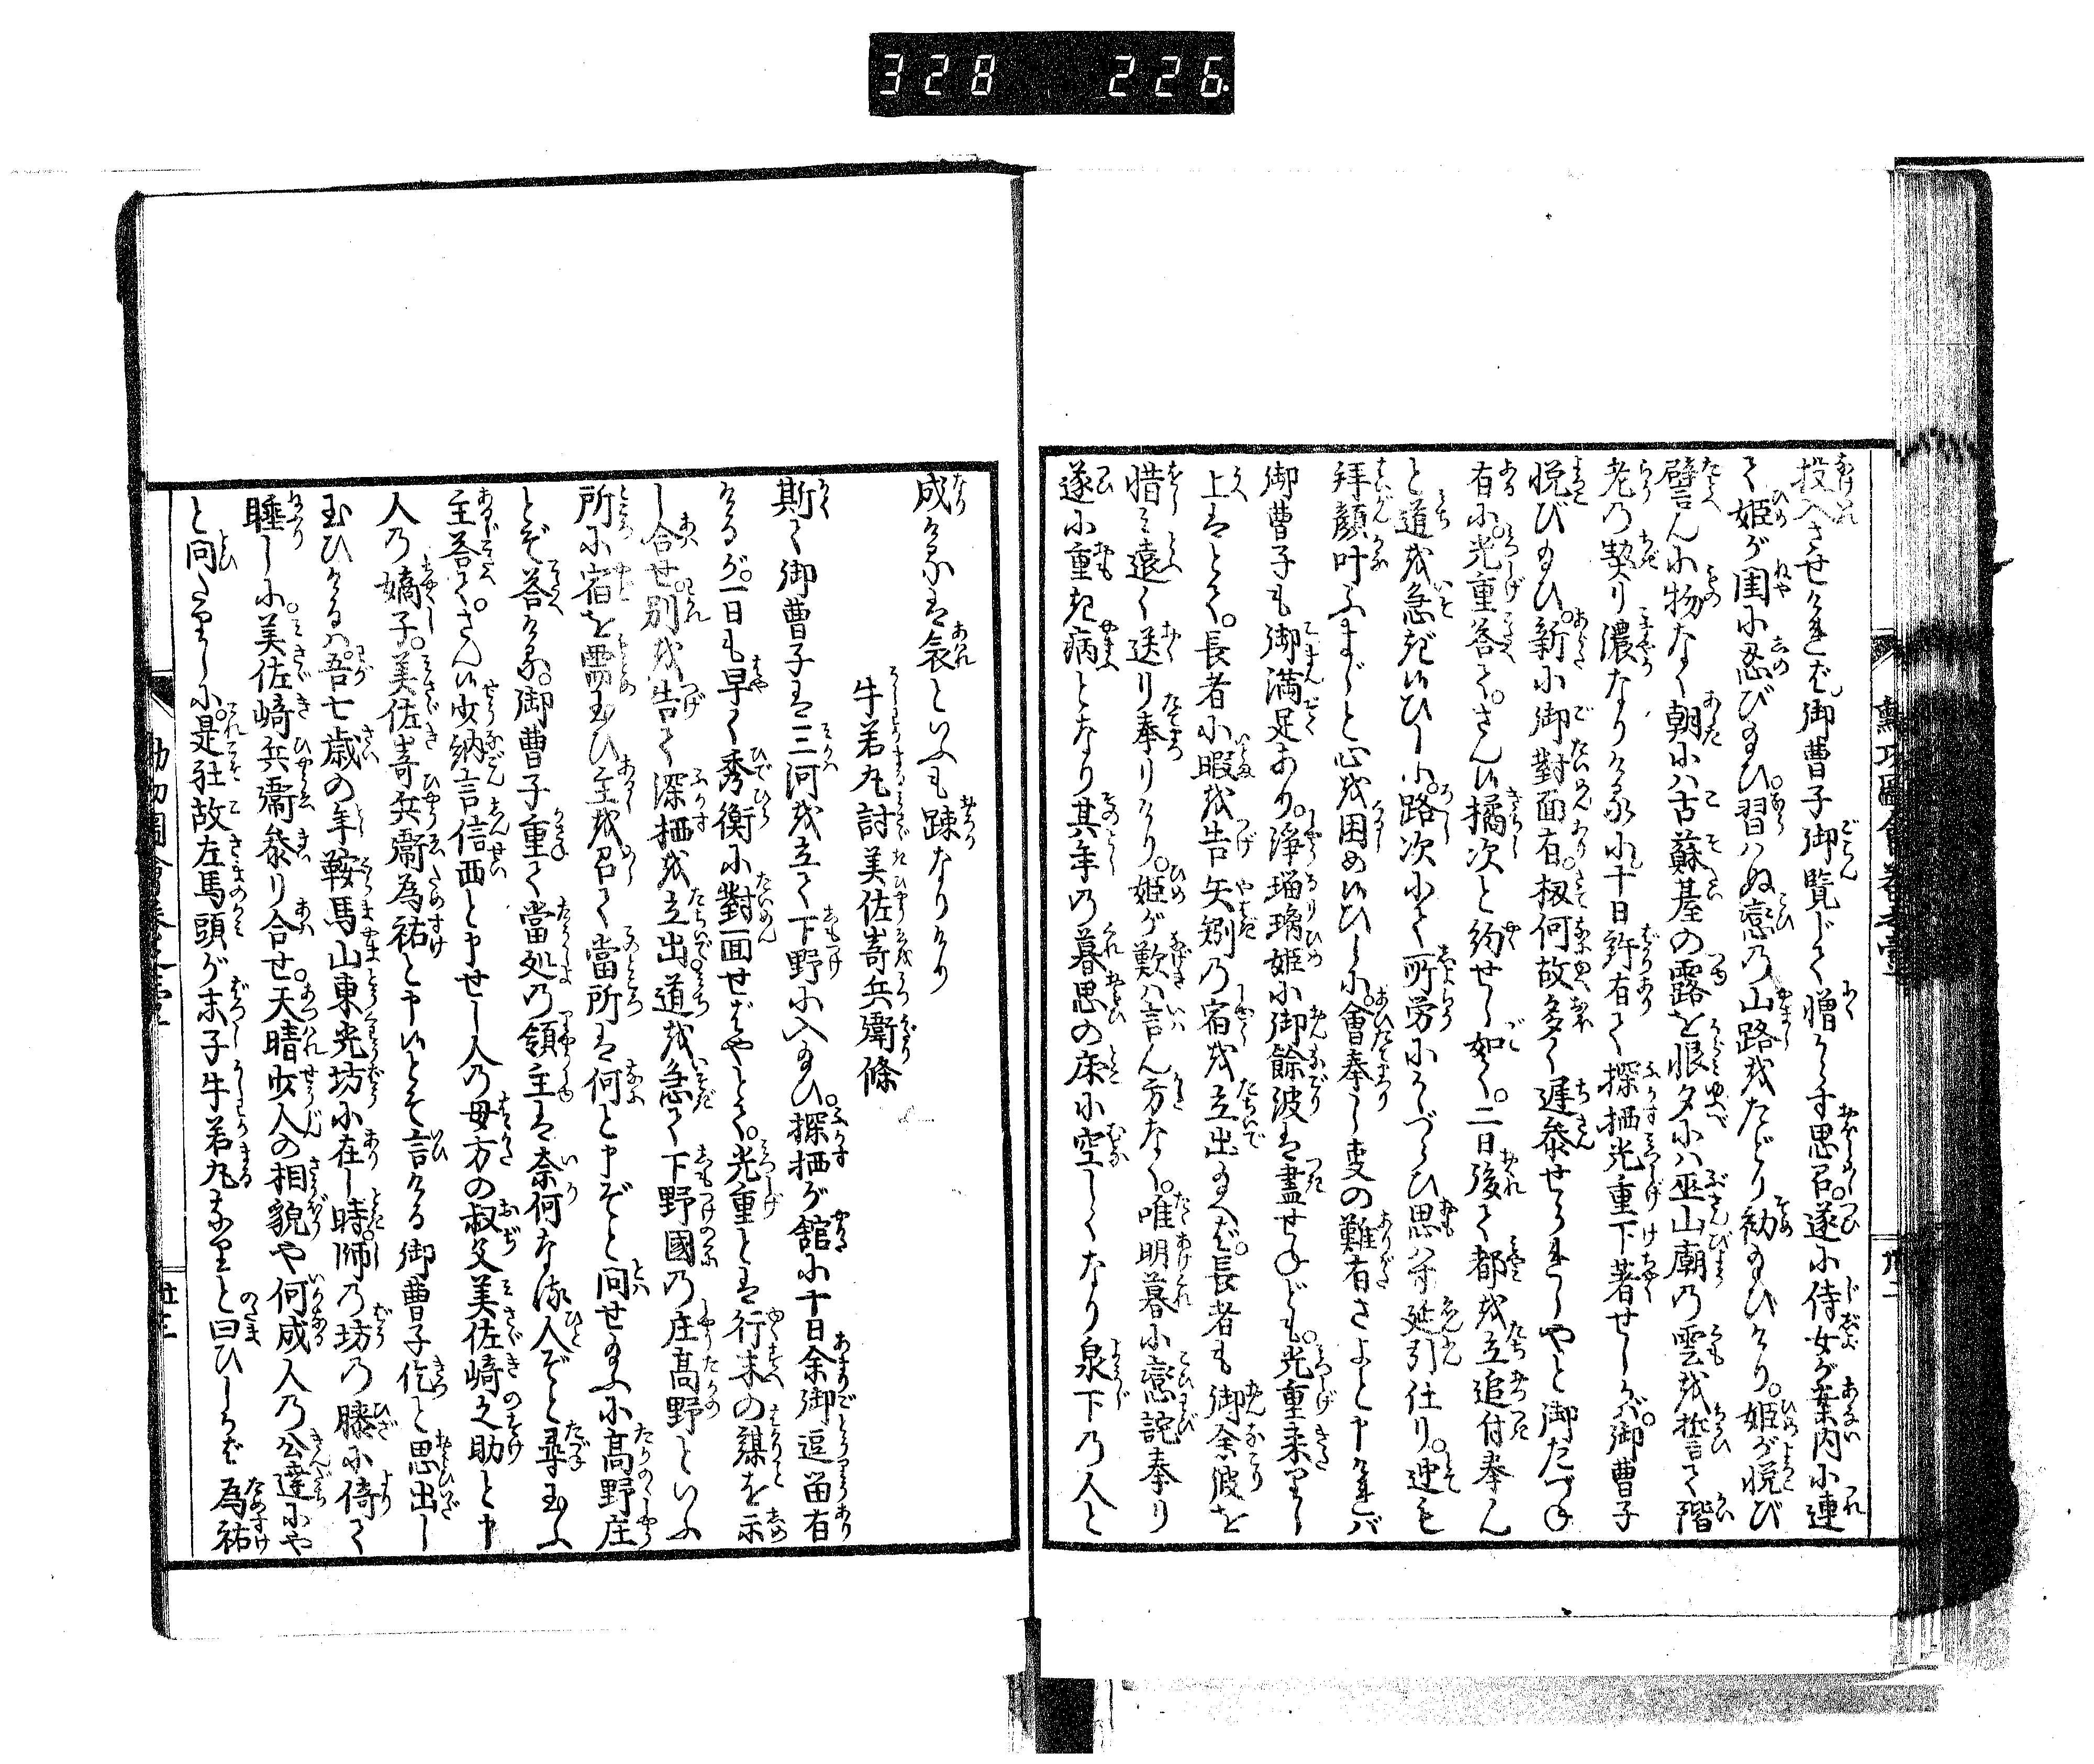 328 226
投入させけれバ御曹子御覧じて憎からず思召。遂に侍女が案内に連
て姫が閨に忍び玉ひ。習ハぬ戀の山路をたどり初玉ひけり。姫が悦び
譬んに物なく朝にハ古蘇臺の露を恨夕にハ巫山廟の雲を誓て階
老の契り濃なりける小十日許有て深栖光重下著せしかバ。御曹子
悦び玉ひ。新に御對面有。扨何故多く遅參せられしやと御たづね
有に。光重答て。さん候橘次と約せし如く。二日後て都を立追付奉ん
と道を急ぎ候ひしに。路次にて所労にかゝづらひ思ハず延引仕り。迚も
拜顔叶ふまじと心を困め候ひしに。會奉りし事の難有さよと申けれバ
御曹子も御満足あり。浄瑠璃姫に御餘波は盡せねども。光重来りし
上はとて。長者に暇を告矢矧の宿を立出玉へバ。長者も御余波を
惜み遠く送り奉りけり。姫が歎ハ言ん方なく。唯明暮に戀詫奉り
遂に重き病となり其年の暮思の床に空しくなり泉下の人と
成けるは哀といふも疎なりけり
牛若丸討美佐嵜兵衛條
斯て御曹子は三河を立て下野に入玉ひ。深栖が舘に十日余御逗留有
けるが。一日も早く秀衡に對面せバやとて。光重とは行末の謀を示
し合せ。別を告て深栖を立出道を急て下野國の庄高野といふ
所に宿を需玉ひ主を召て當所は何と申ぞと問せ玉ふに高野庄
とぞ答ける。御曹子重て當処の領主は奈何なる人ぞと尋玉ふ
主答て。さん候少納言信西と申せし人の母方の叔父美佐崎之助と申
人の嫡子。美佐嵜兵衞為祐と申候とぞ言ける御曹子屹と思出し
玉ひけるハ。吾七歳の年鞍馬山東光坊に在し時。師の坊の膝に倚て
睡しに。美佐崎兵衞參り合せ。天晴少人の相貌や何成人の公達にや
と問たりしに。是社故左馬頭が末子牛若丸なりと曰ひしかバ為祐